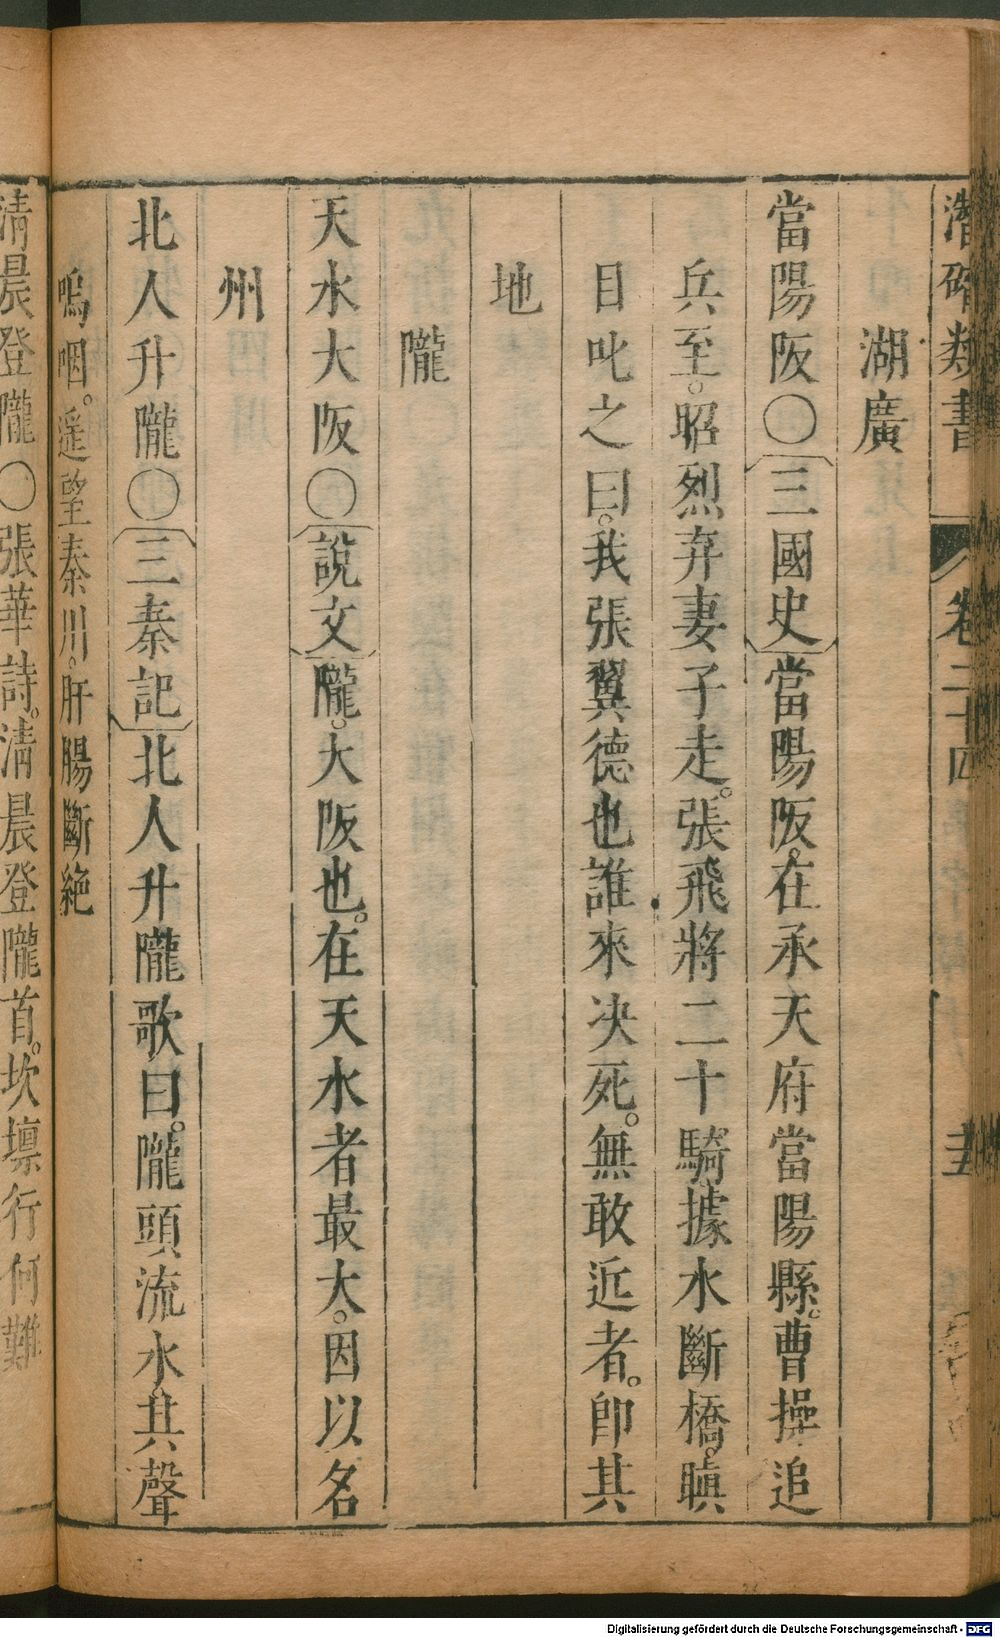 潛確類書 卷二十四
湖廣
當陽阪〇三國史當陽阪在承天府當陽縣。曹操追
兵至。昭烈弃妻子走。張飛將二十騎據水斷橋。瞋
目叱之曰。我張翼德也誰來决死。無敢近者。卽其
地
隴
天水大阪〇說文隴。大阪也。在天水者最大。因以名
州
北人升隴〇三秦記北人升隴歌曰。隴頭流水其聲
嗚咽。遥望秦川。肝腸斷絶
清晨登隴〇張華詩。清晨登隴首。坎壈行何難
Digitalisierung gefördert durch die Deutsche Forschungsgemeinschaft - DFG